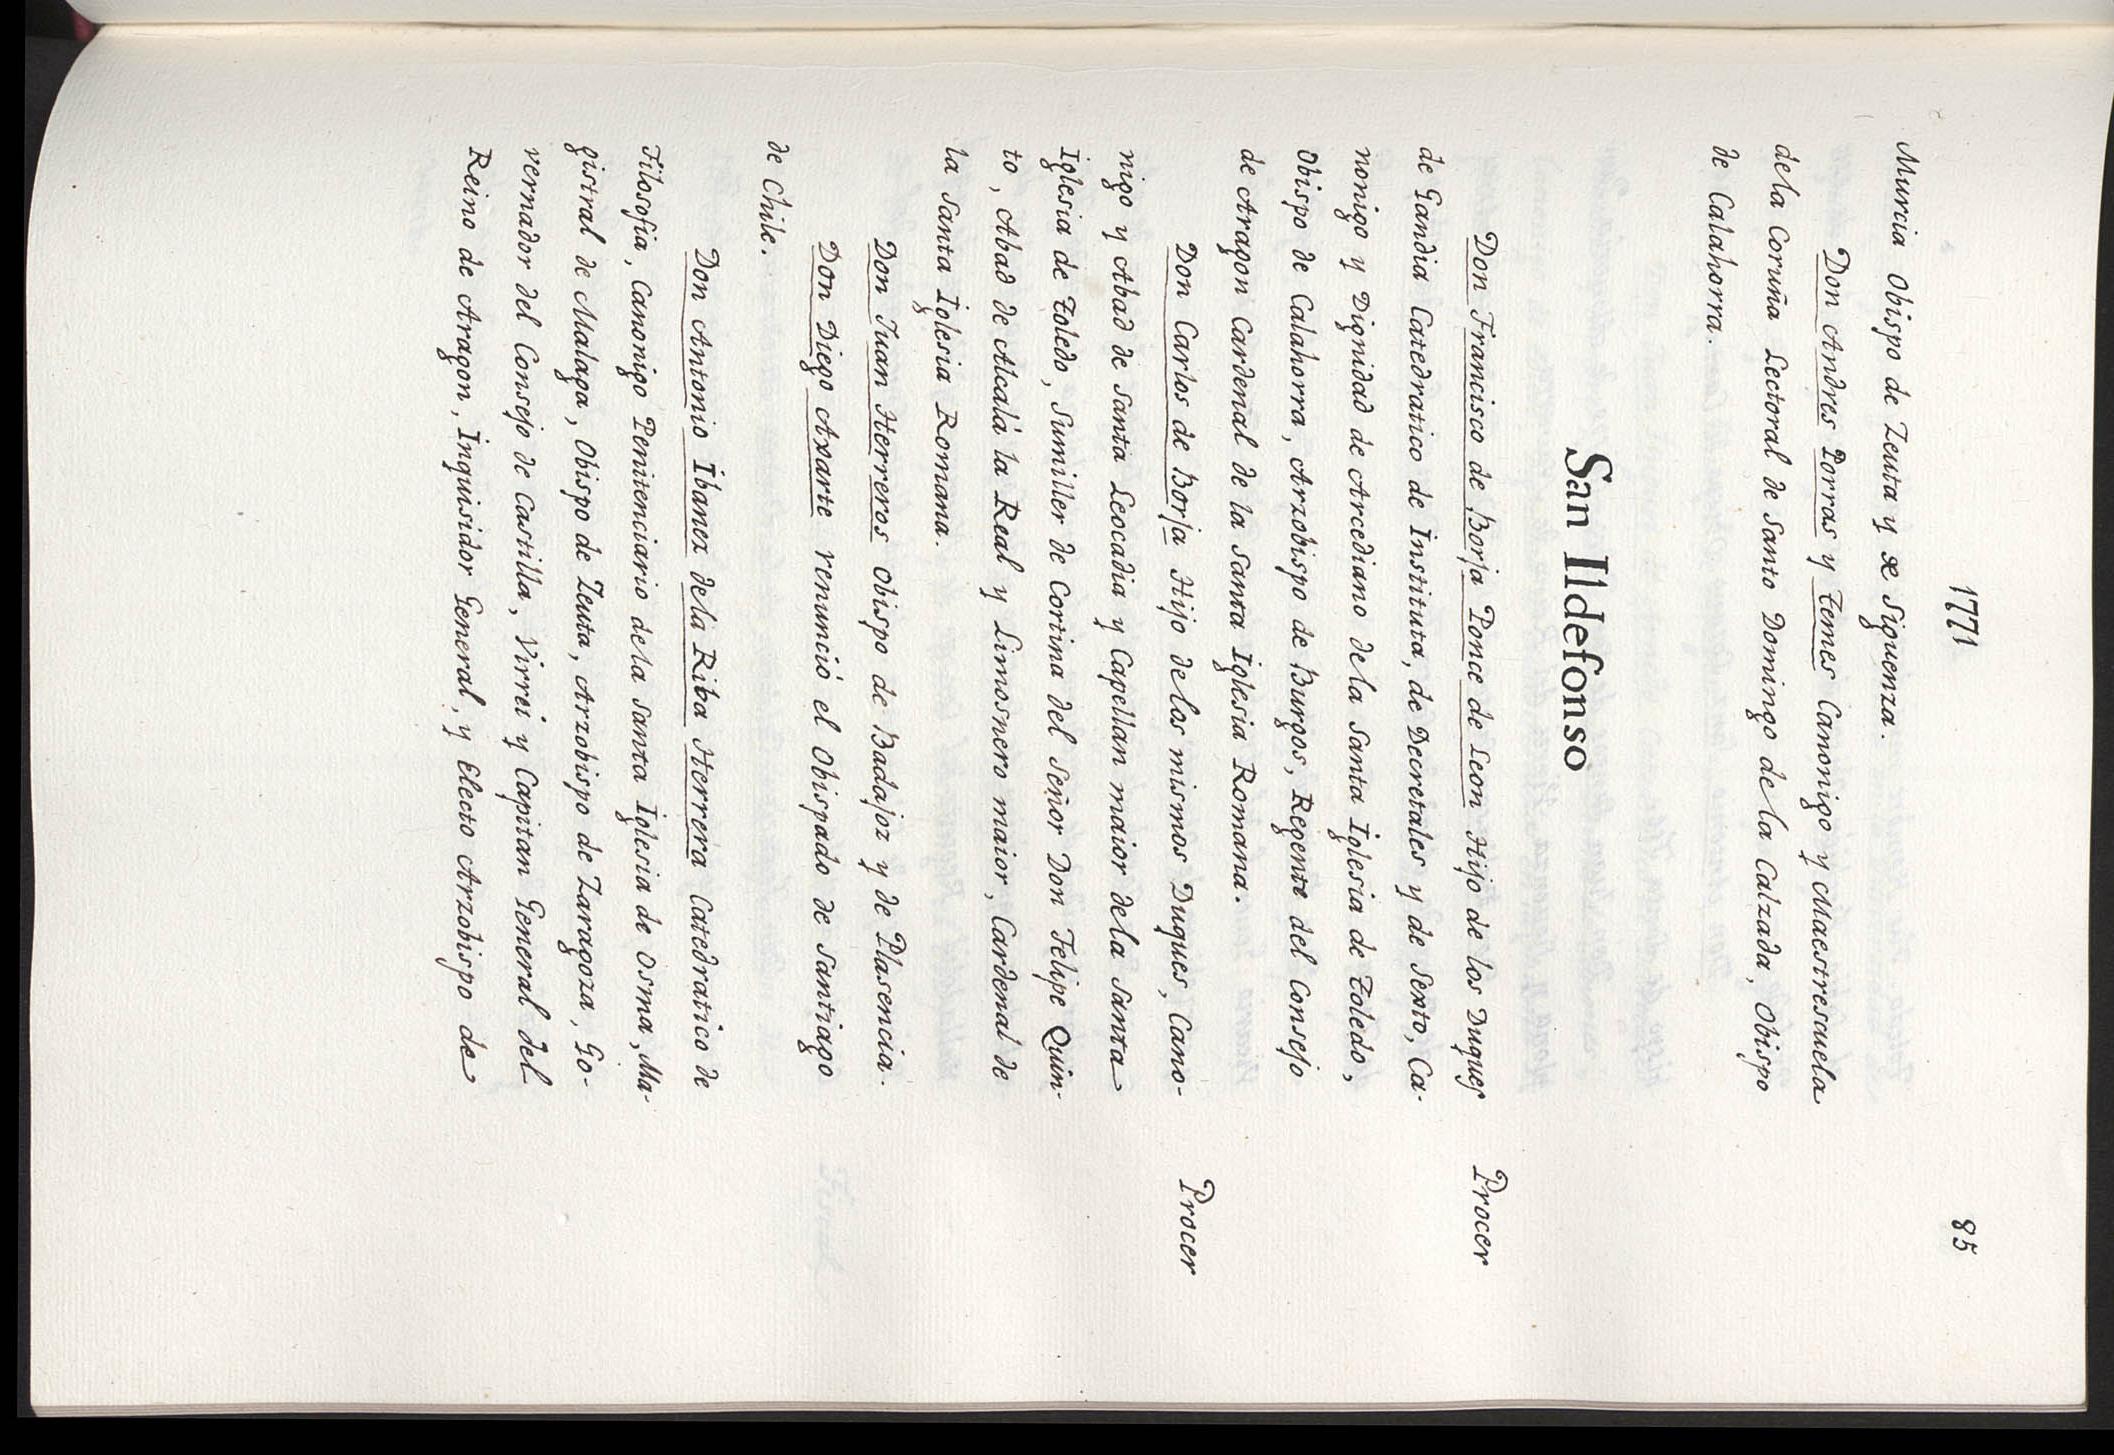 1771
85
Murcia Obispo de Zeuta y de Siguenza.
Don Andres Porras y Temes Canonigo y Maestrescuela
dela Coruña Lectoral de Santo Domingo de la Calzada, Obispo
de Calahorra.
San Ildefonso
Don Francisco de Borja Ponce de Leon Hijo de los Duques
Procer
de Gandia Catedratico de Instituta, de Decretales y de Sexto, Ca-
nonigo y Dignidad de Arcediano dela Santa Iglesia de Toledo,
Obispo de Calahorra, Arzobispo de Burgos, Regente del Consejo
de Aragon Cardenal de la Santa Iglesia Romana.
Don Carlos de Borja Hijo delos mismos Duques, Cano-
Procer
nigo y Abad de Santa Leocadia y Capellan maior dela Santa
Iglesia de Toledo, Sumiller de Cortina del Señor Don Felipe Quin-
to, Abad de Alcalá la Real y Limosnero maior, Cardenal de
la Santa Iglesia Romana.
Don Juan Herreros Obispo de Badajoz y de Plasencia.
Don Diego Axarte renunció el Obispado de Santiago
de Chile.
Don Antonio Ibanez dela Riba Herrera Catedratico de
Filosofia, Canonigo Penitenciario dela Santa Iglesia de Osma, Ma-
gistral de Malaga, Obispo de Zeuta, Arzobispo de Zaragoza, Go-
vernador del Consejo de Castilla, Virrei y Capitan General del
Reino de Aragon, Inquisidor General, y Electo Arzobispo de